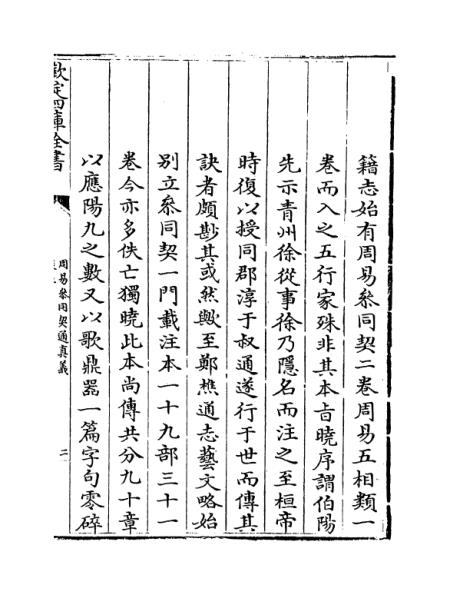 籍志始有周易叅同契二卷周易五相類一
卷而入之五行家殊非其本㫖曉序謂伯陽
先示青州徐從事徐乃隱名而注之至桓帝
時復以授同郡淳于叔通遂行于世而傳其
訣者頗尠其或然歟至鄭樵通志藝文略始
別立叅同契一門載注本一十九部三十一
卷今亦多佚亡獨曉此本尚傳共分九十章
以應陽九之數又以歌鼎器一篇字句零碎
欽定四庫全書
周易叅同契通真義
二